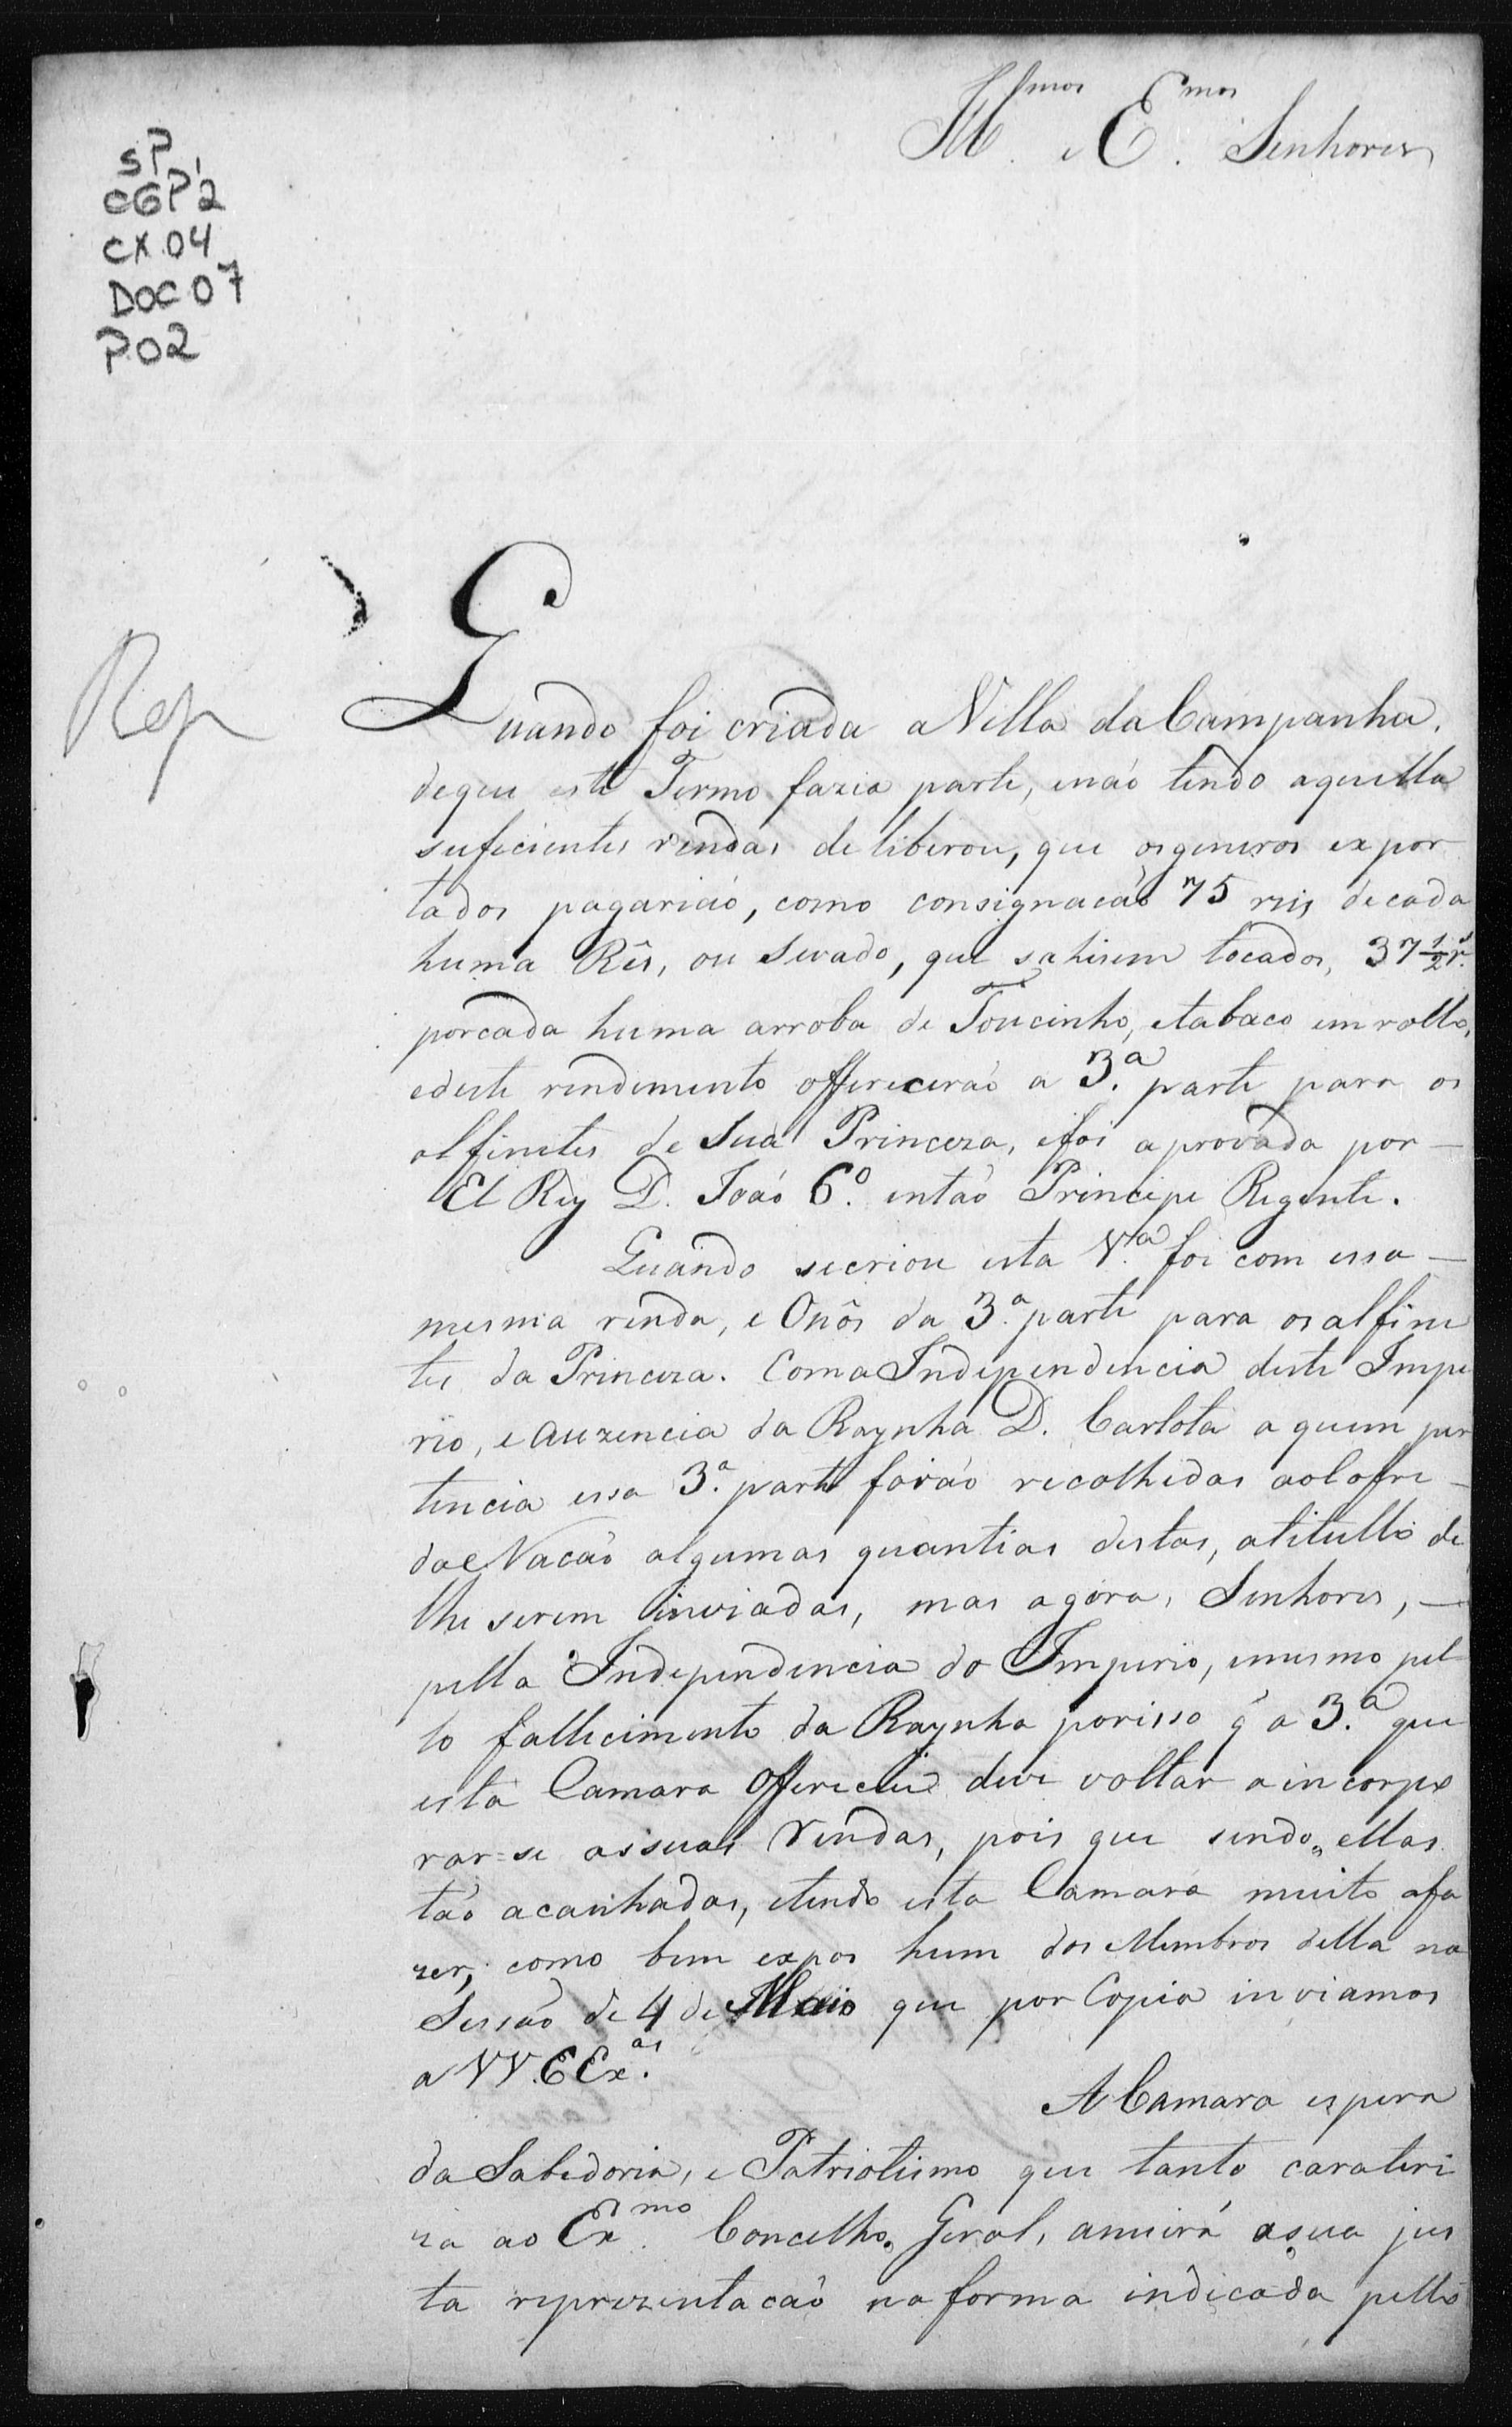 Ill.mos e E.mos Senhores
SP
CGP'2
CX.04
DOC 07
P.02
Rep
Quando foi criada a Villa da Campanha,
deque este Termo fazia parte, enaõ tendo aquella
suficientes rendas deliberou, que osgeneros expor
tados pagariaõ, como consignacaõ 75 reis decada
huma Rês, ou Sevado, que sahisem tocados, 37½ r.s
porcada huma arroba de Toucinho, etabaco em rollo,
edeste rendimento offereceraõ a 3.ª parte para os
alfinetes de Sua Princeza, efoi aprovada por -
El Rey D. Joaõ 6.º entaõ Principe Regente.
Quando secriou esta V.ª foi com essa -
mesma renda, e Onôs da 3.ª parte para osalfine
tes da Princeza. ComaIndependencia deste Impe
rio, e auzencia da Raynha D. Carlota aquem per
tencia essa 3.ª parte foraõ recolhidas aoCofre -
daNacaõ algumas quantias destas, atitullo de
lhe serem inviadas, mas agora, Senhores, -
pella Independencia do Imperio, emesmo pel
lo fallecimento da Raynha porisso q̃ a 3.ª que
esta Camara Offereceu deve voltar aincorpo
rar=se assuas rendas, pois que sendo ellas
taõ acanhadas, etendo esta Camara muito afa
zer, como bem expos hum dos Membros della na
Sessaõ de 4 de Maio que por Copia inviamos
a VV.EEx.as
A Camara espera
da Sabedoria, e Patriotismo que tanto carateri
za ao Ex.mo Concelho Geral, anuirá asua jus
ta reprezentacaõ na forma indicada pello